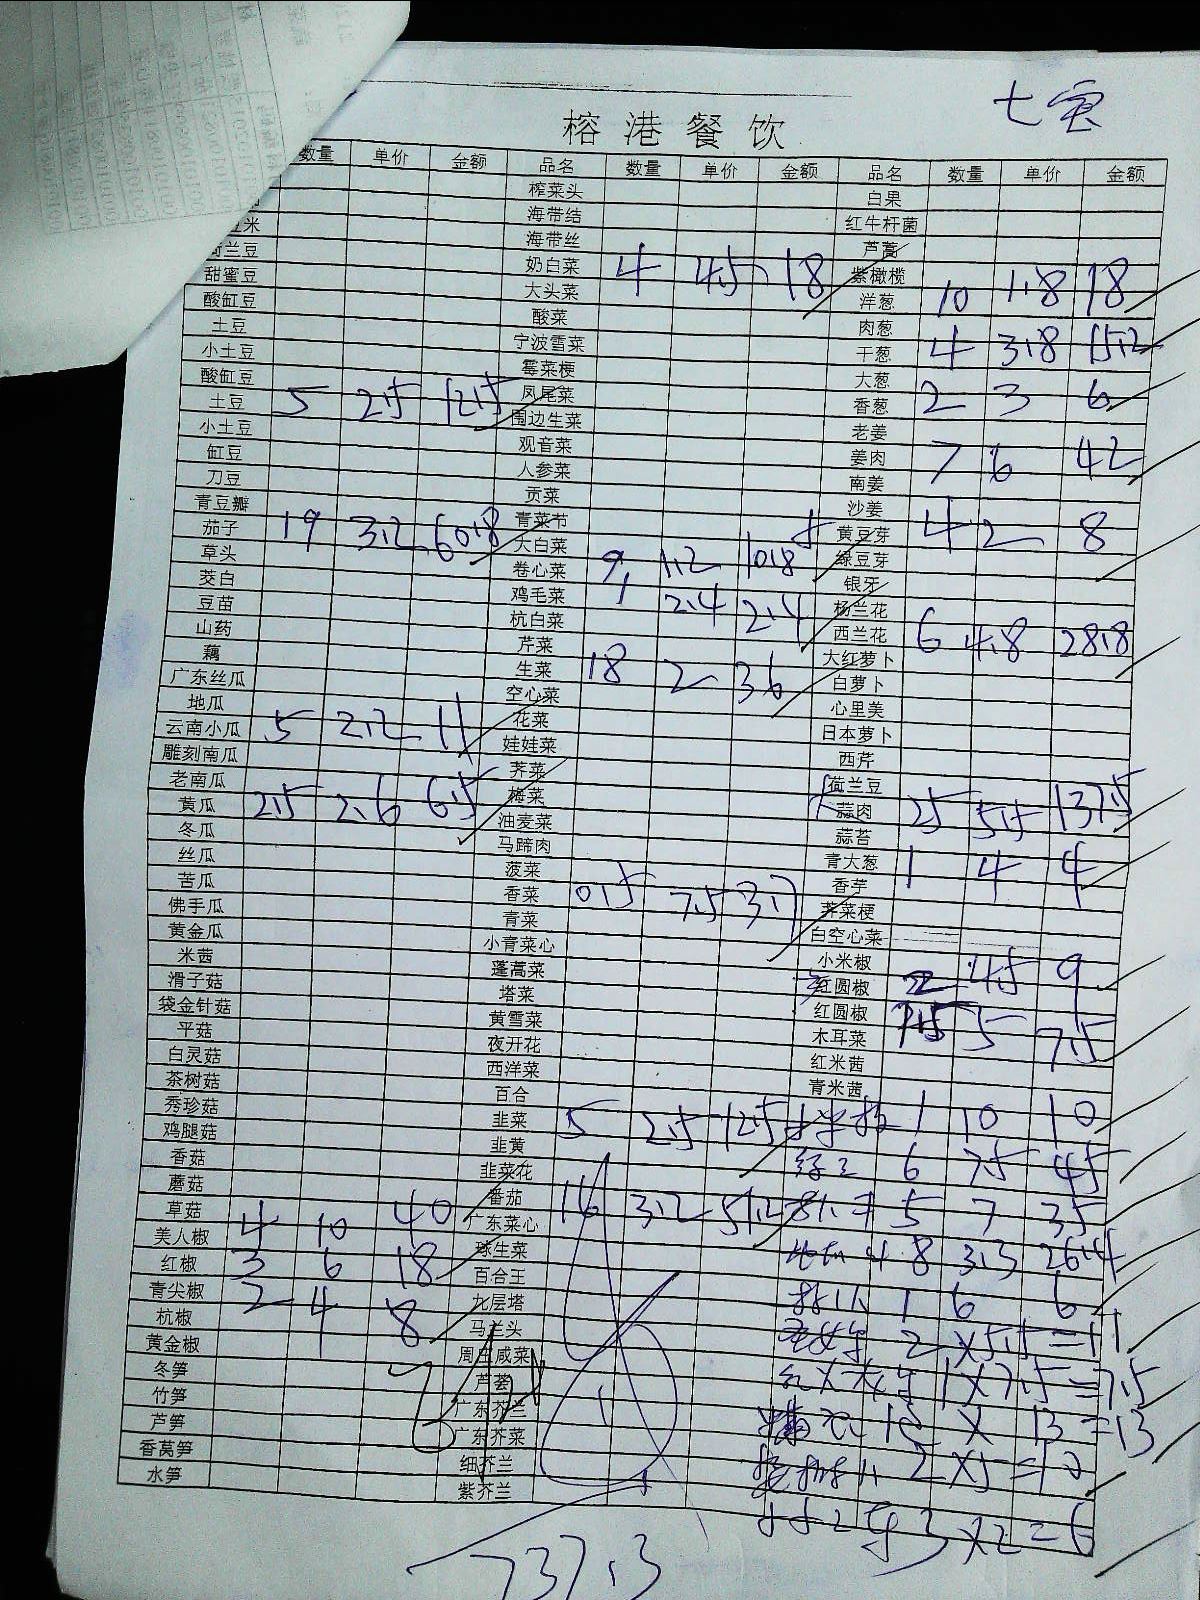 七宝
榕港餐饮
数量 单价 金额 品名 数量 单价 金额 品名 数量 单价 金额
榨菜头 白果
米 海带结 红牛杆菌
荷兰豆 海带丝 芦蒿
甜蜜豆 奶白菜 4 4.5 18 紫橄榄
酸缸豆 大头菜 洋葱 10 1.8 18
土豆 酸菜 肉葱
小土豆 宁波雪菜 干葱 4 3.8 15.2
酸缸豆 霉菜梗 大葱
土豆 5 2.5 12.5 凤尾菜 香葱 2 3 6
小土豆 围边生菜 老姜
缸豆 观音菜 姜肉 7 6 42
刀豆 人参菜 南姜
青豆瓣 贡菜 沙姜
茄子 19 3.2 60.8 青菜节 黄豆芽 4 2 8
草头 大白菜 绿豆芽
茭白 卷心菜 9 1.2 10.8 银牙
豆苗 鸡毛菜 1 2.4 2.4 杨兰花
山药 杭白菜 西兰花 6 4.8 28.8
藕 芹菜 大红萝卜
广东丝瓜 生菜 18 2 36 白萝卜
地瓜 空心菜 心里美
云南小瓜 5 2.2 11 花菜 日本萝卜
雕刻南瓜 娃娃菜 西芹
老南瓜 荠菜 荷兰豆
黄瓜 2.5 2.6 6.5 梅菜 蒜肉 25 5.5 137.5
冬瓜 油麦菜 蒜苔
丝瓜 马蹄肉 青大葱 1 4 4
苦瓜 菠菜 香芋
佛手瓜 香菜 0.5 7.5 3.7 荠菜梗
黄金瓜 青菜 白空心菜
米茜 小青菜心 小米椒
滑子菇 蓬蒿菜 圆椒 2 4.5 9
袋金针菇 塔菜 红圆椒 1.5 5 7.5
平菇 黄雪菜 木耳菜
白灵菇 夜开花 红米茜
茶树菇 西洋菜 青米茜
秀珍菇 百合 1 10 10
鸡腿菇 韭菜 5 2.5 12.5
香菇 韭黄 6 7.5 45
蘑菇 韭菜花
草菇 番茄 16 3.2 51.2 5 7 35
美人椒 4 10 40 广东菜心 8 3.3 26.4
红椒 3 6 18 球生菜
青尖椒 2 4 8 百合王 1 6 6
杭椒 九层塔 2×5.5=11
黄金椒 马兰头 1×7.5=7.5
冬笋 周庄咸菜 × 13=13
竹笋 芦荟 2×5=10
芦笋 广东芥兰 3×2=6
香莴笋 广东芥菜
水笋 细芥兰
紫芥兰
737.3